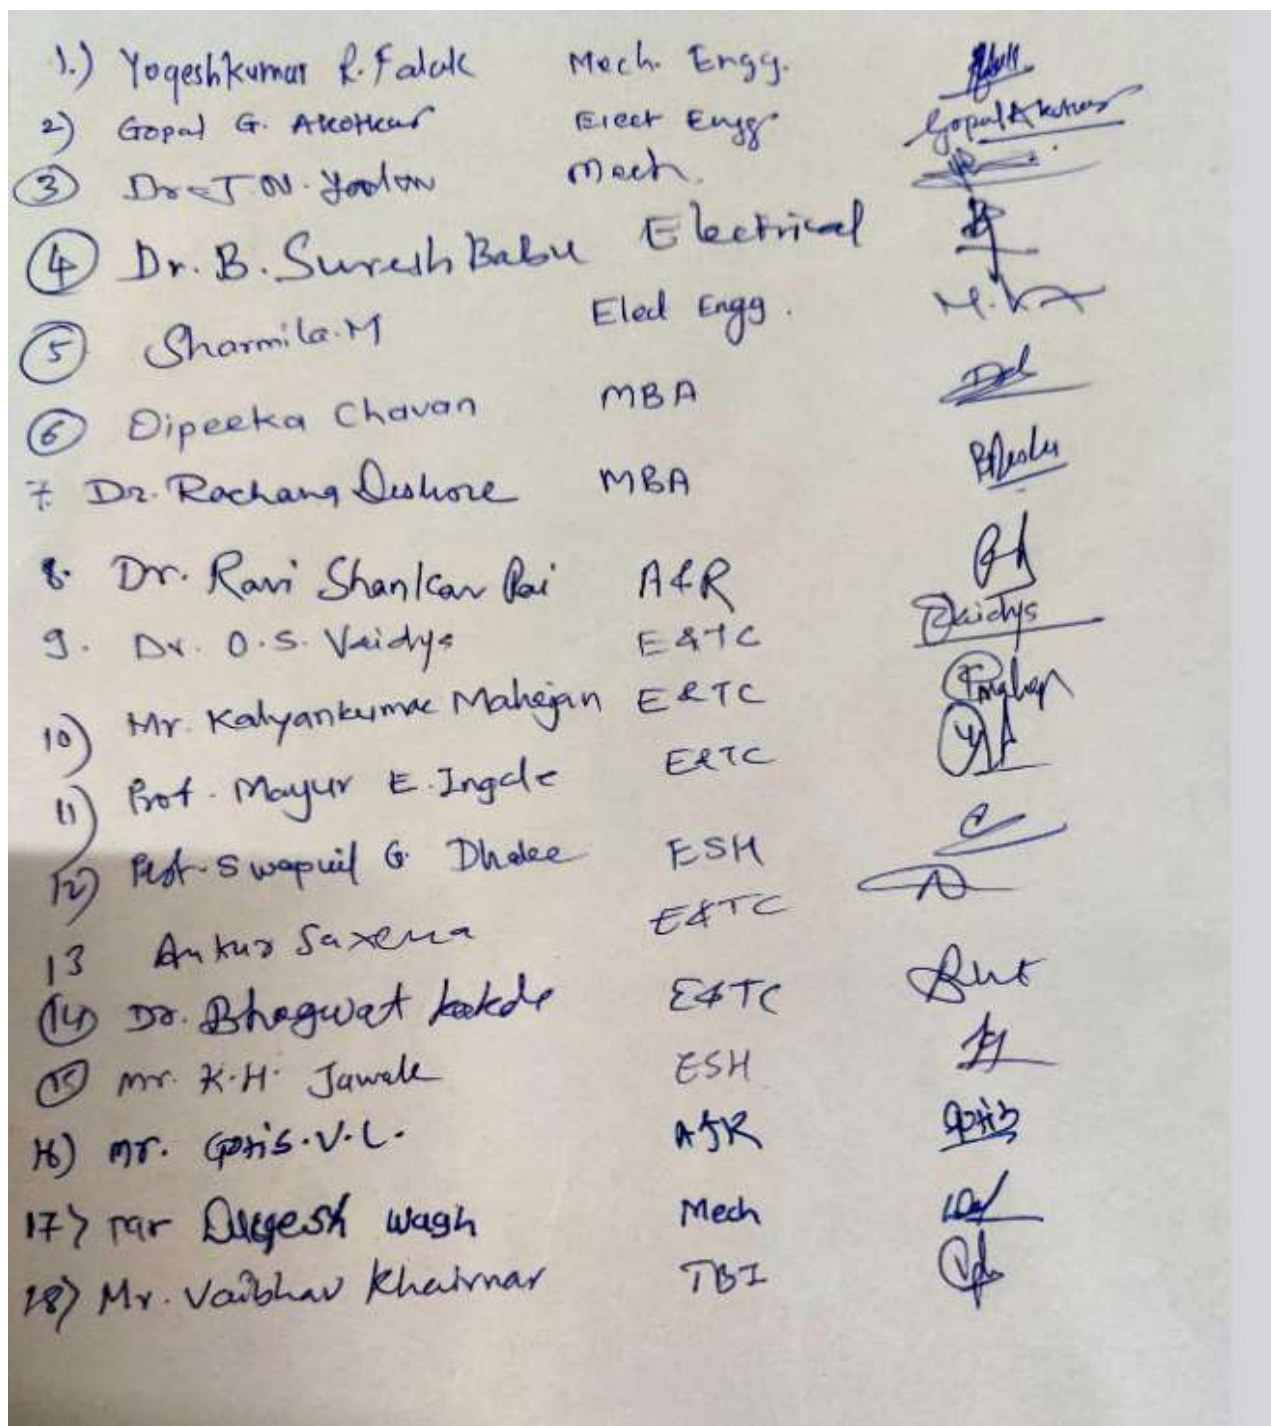 1.) Yogeshkumar R. Falak Mech. Engg.
2) Gopal G. Akotkar Elect Engg Gopal Akotkar
3 Dr. T Mech.
4 Dr. B. Suresh Babu Electrical
5 Sharmila.M Elect Engg.
6 Dipeeka Chavan MBA
7. Dr. Rachana MBA
8. Dr. Ravi Shankar Rai A&R
9. Dr. O.S. Vaidya E&TC Vaidya
10) Mr. Kalyankumar Mahajan E&TC
11) Prof. Mayur E. Ingale E&TC
12) Prof. Swapnil G. ESH
13 Ankur Saxena E&TC
14 Dr. Bhagwat Kakde E&TC
15 Mr. K.H. Jawale ESH
16) Mr. V.L. A&R
17) Mr Durgesh Wagh Mech
18) Mr. Vaibhav Khairnar TBI